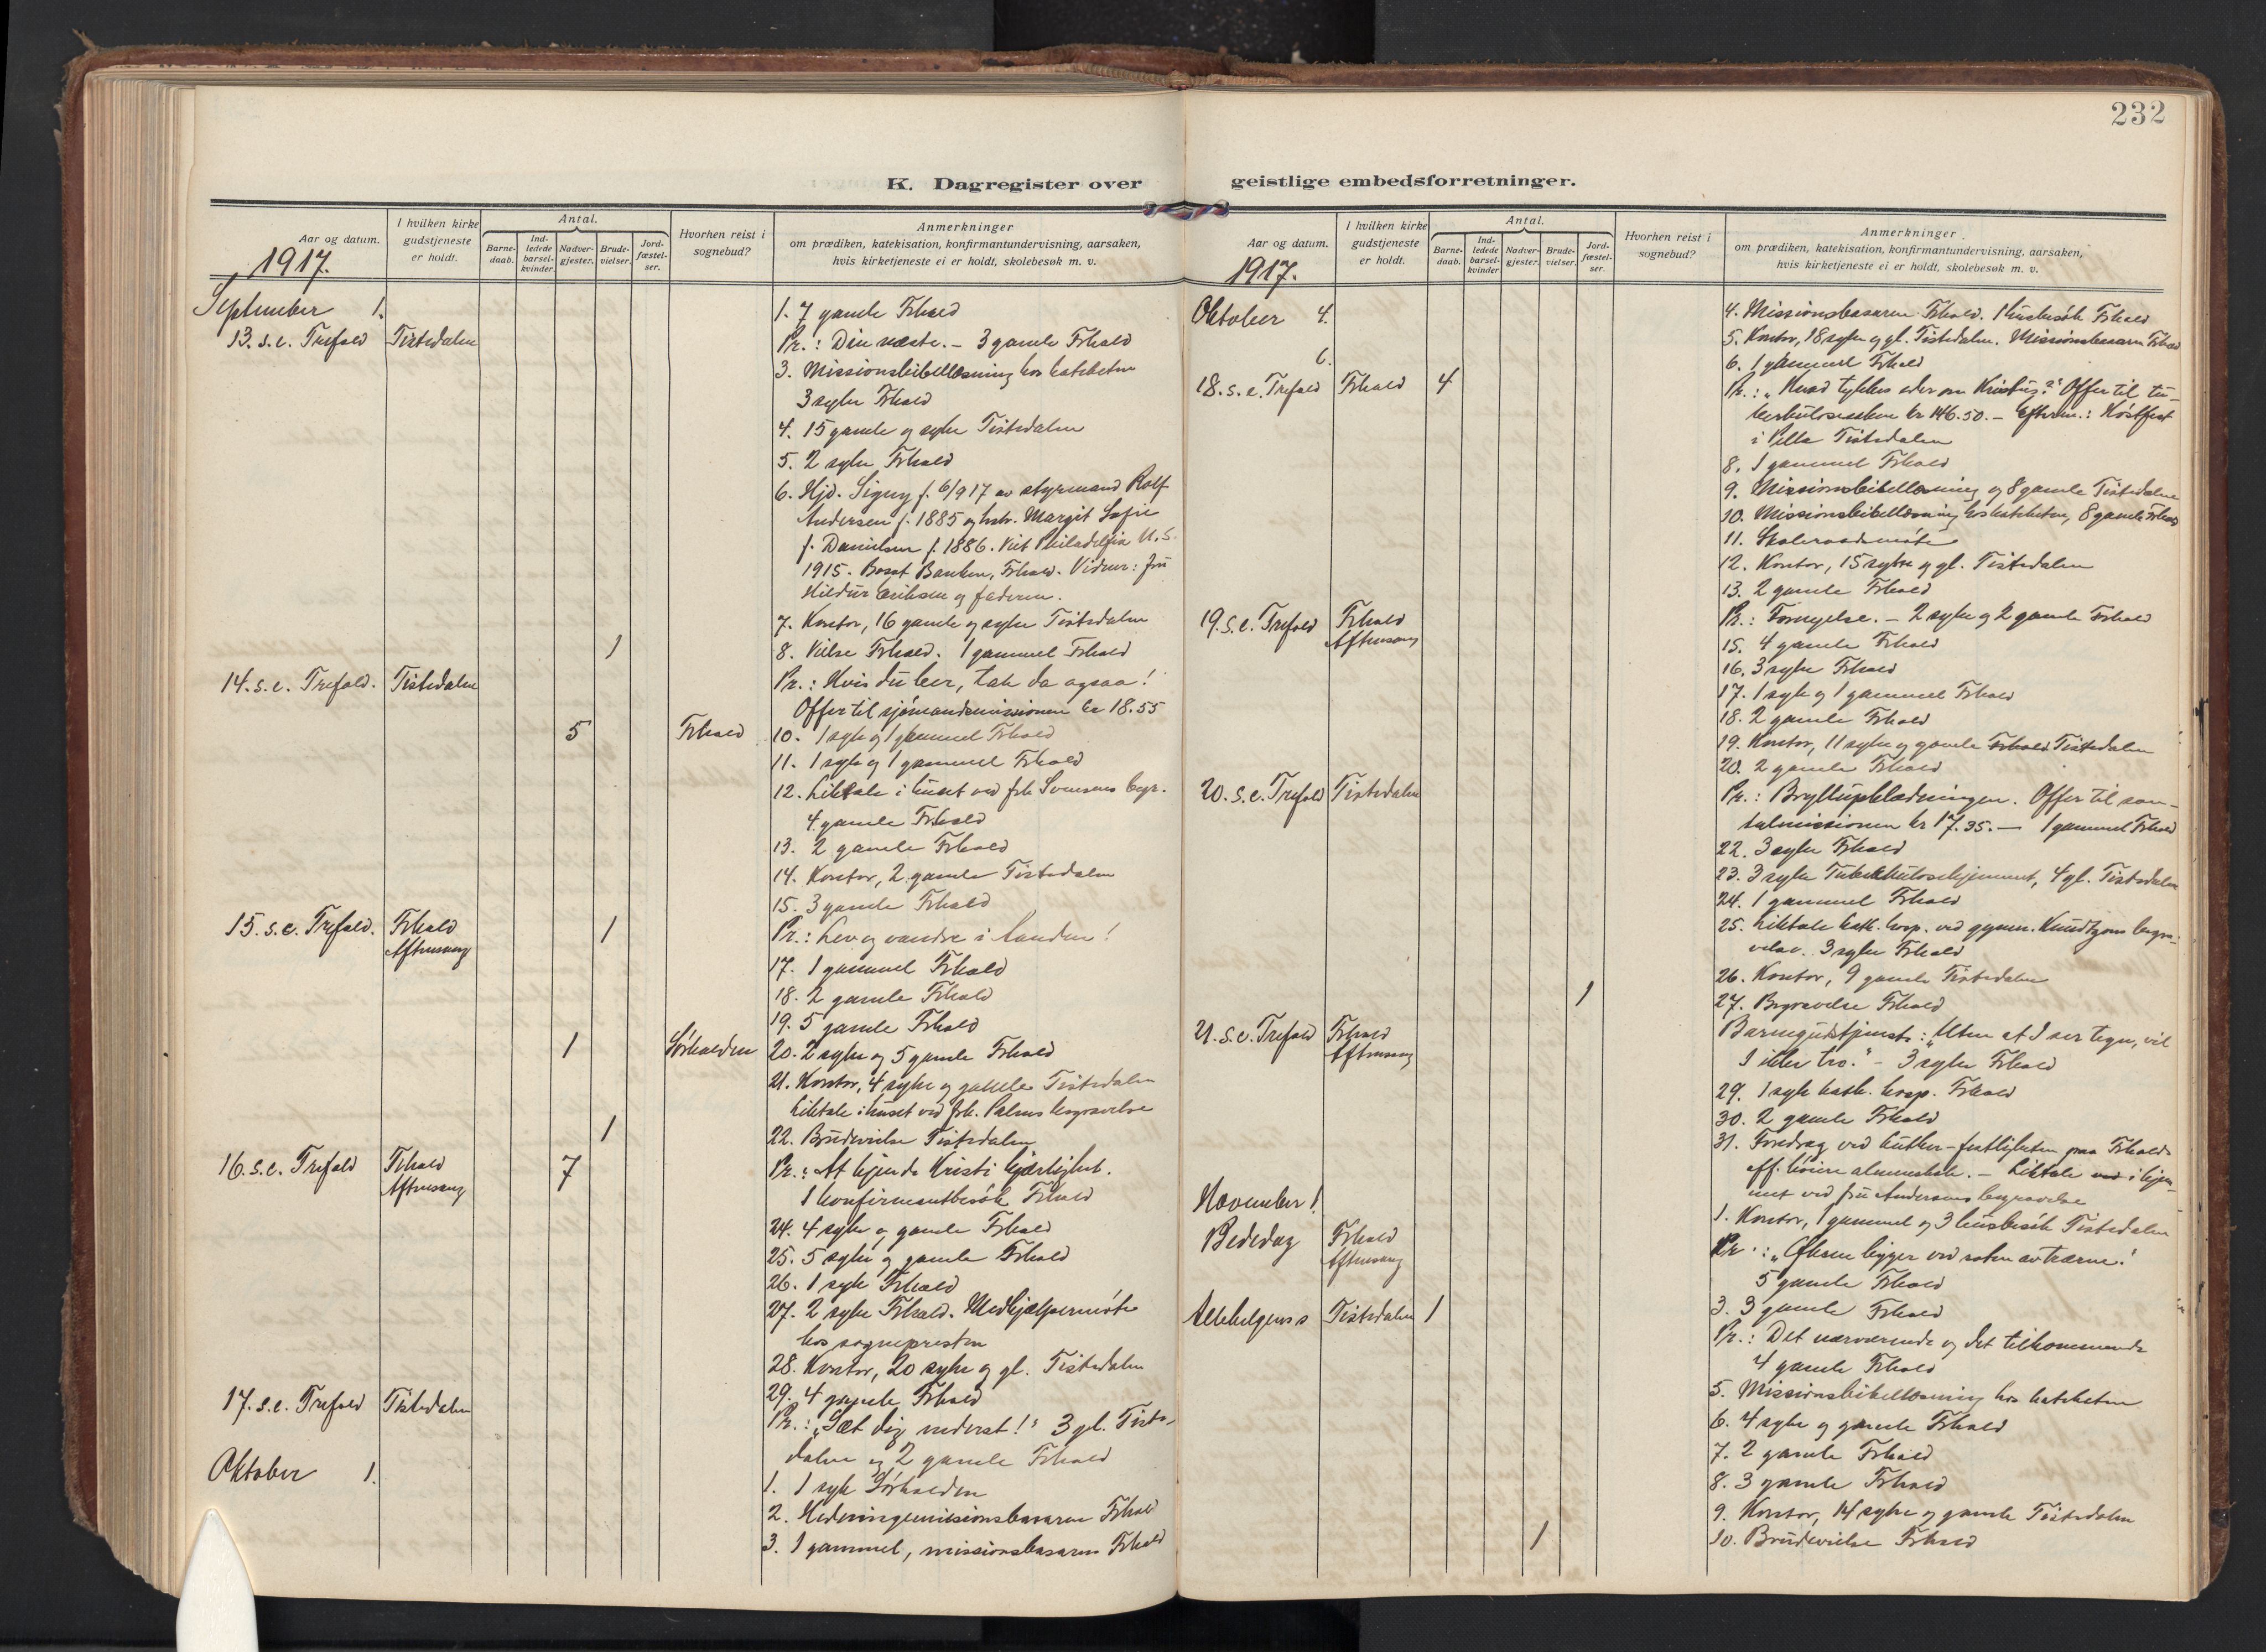 232
K. Dagregister over geistlige embedsforretninger.
Aar og datum.
1917.
I hvilken kirke gudstjeneste er holdt.
Antal.
Barne-daab.
Ind-ledede barsel-kvinder.
Nadver-gjester.
Brude-vielser.
Jord-fæstel-ser.
Hvorhen reist i sognebud?
Anmerkninger
om prædiken, katekisation, konfirmantundervisning, aarsaken,
hvis kirketjeneste ei er holdt, skolebesøk m. v.
September 1. 1. 7 gamle Frhald
13. s. e. Trefold Tistedalen Pr.: Din næste. – 3 gamle Frhald
3. Missionsbibellæsning hos kateketen
3 syke Frhald
4. 15 gamle og syke Tistedalen
5. 2 syke Frhald
6. Hjd. Signy f. 6/9 17 av styrmand Rolf
Andersen f. 1885 og hstr. Margit Sofie
f. Danielsen f. 1886. Viet Philadelfia U.S.
1915. Bosat Banken, Frhald. Vidner: fru
Hildur Eriksen og faderen.
7. Kontor, 16 gamle og syke Tistedalen
1 8. Vielse Frhald. 1 gammel Frhald
14. s. e. Trefold. Tistedalen Pr.: Hvis du ber, tak da ogsaa!
Offer til sjømandsmissionen kr 18.55
5 Frhald 10. 1 syk og 1 gammel Frhald
11. 1 syk og 1 gammel Frhald
12. Liktale i huset ved frk Svensens begr.
4 gamle Frhald
13. 2 gamle Frhald
14. Kontor, 2 gamle Tistedalen
15. 3 gamle Frhald
15. s. e. Trefold. Frhald 1 Pr.: Lev og vandre i Aanden!
Aftensang
17. 1 gammel Frhald
18. 2 gamle Frhald
19. 5 gamle Frhald
1 Sørhalden 20. 2 syke og 5 gamle Frhald
21. Kontor, 4 syke og gamle Tistedalen
Liktale i huset ved frk. Palms begravelse
1 22. Brudevielse Tistedalen
16. s. e. Trefold Frhald 7 Pr.: At kjende Kristi kjærlighet.
Aftensang 1 konfirmantbesøk Frhald
24. 4 syke og gamle Frhald
25. 5 syke og gamle Frhald
26. 1 syk Frhald
27. 2 syke Frhald. Medhjælpermøte
hos sognepresten
28. Kontor, 20 syke og gl. Tistedalen
29. 4 gamle Frhald
17. s. e. Trefold Tistedalen Pr.: „Sæt dig nederst!" 3 gl. Tiste-
dalen og 2 gamle Frhald
Oktober 1. 1. 1 syk Sørhalden
2. Hedningemissionsbasaren Frhald
3. 1 gammel, missionsbasaren Frhald
Aar og datum.
1917.
I hvilken kirke gudstjeneste er holdt.
Antal.
Barne-daab.
Ind-ledede barsel-kvinder
Nadver-gjester.
Brude-vielser.
Jord-fæstel-ser.
Hvorhen reist i sognebud?
Anmerkninger
om prædiken, katekisation, konfirmantundervisning, aarsaken,
hvis kirketjeneste ei er holdt, skolebesøk m. v.
Oktober 4. 4. Missionsbasaren Frhald. 1 husbesøk Frhald
5. Kontor, 18 syke og gl. Tistedalen. Missionsbasaren Frhald
6. 6. 1 gammel Frhald
18. s. e. Trefold Frhald 4 Pr.: „Hvad tykkes eder om Kristus?" Offer til tu-
berkulosesaken kr 146.50. – Efterm.: Høstfest
i Tistedalen
8. 1 gammel Frhald
9. Missionsbibellæsning og 8 gamle Tistedalen
10. Missionsbibellæsning hos kateketen, 8 gamle Frhald
11. Skoleraadsmøte
12. Kontor, 15 syke og gl. Tistedalen
13. 2 gamle Frhald
19. s. e. Trefold Frhald Pr.: Fornyelse. – 2 syke og 2 gamle Frhald
Aftensang
15. 4 gamle Frhald
16. 3 syke Frhald
17. 1 syk og 1 gammel Frhald
18. 2 gamle Frhald
19. Kontor, 11 syke og gamle Frhald Tistedalen
20. 2 gamle Frhald
20. s. e. Trefold Tistedalen Pr.: Bryllupsklædningen. Offer til san-
talmissionen kr 17.35. – 1 gammel Frhald
22. 3 syke Frhald
23. 3 syke Tuberkulosehjemmet, 4 gl. Tistedalen
24. 1 gammel Frhald
25. Liktale kath. hosp. ved gymn. Knudtzons begra-
velse. 3 syke Frhald
26. Kontor, 9 gamle Tistedalen
1 27. Begravelse Frhald
21. s. e. Trefold Frhald Barnegudstjeneste: „Uten at I ser tegn, vil
Aftensang I ikke tro." – 3 syke Frhald
29. 1 syk kath. hosp. Frhald
30. 2 gamle Frhald
31. Foredrag ved Luther-festligheten paa Frhalds
off. høiere almenskole. – Liktale ved i hjem-
met ved fru Andersens begravelse
November 1. 1. Kontor, 1 gammel og 3 husbesøk Tistedalen
Bededag Frhald Pr.: „Øksen ligger ved roten av trærne."
Aftensang 5 gamle Frhald
3. 3 gamle Frhald
Allehelgens s Tistedalen 1 Pr.: Det nærværende og det tilkommende
4 gamle Frhald
5. Missionsbibellæsning hos kateketen
6. 4 syke og gamle Frhald
7. 2 gamle Frhald
8. 3 gamle Frhald
9. Kontor, 14 syke og gamle Tistedalen
1 10. Brudevielse Frhald